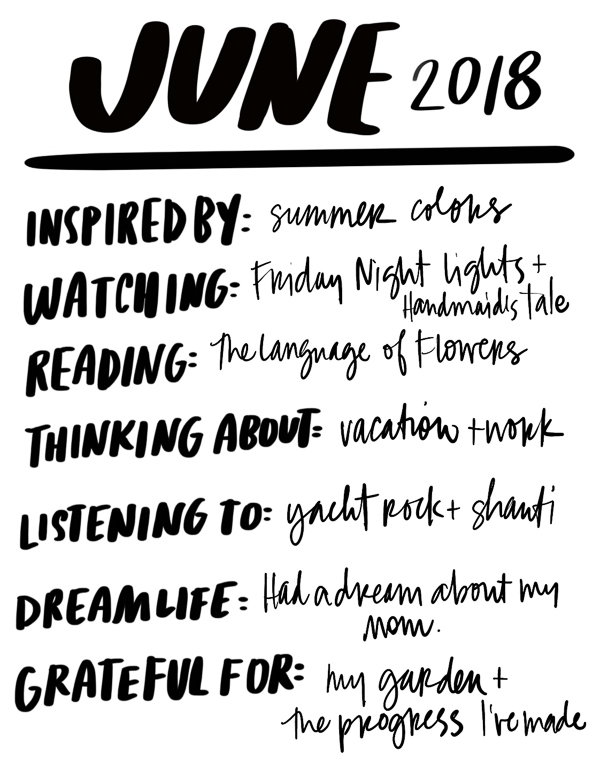 JUNE 2018
INSPIRED BY: summer colors
WATCHING: Friday Night lights +
Handmaid's tale
READING: The language of Flowers
THINKING ABOUT: vacation + work
LISTENING TO: yacht rock + shanti
DREAM LIFE: Had a dream about my
mom.
GRATEFUL FOR: my garden +
the progress I've made